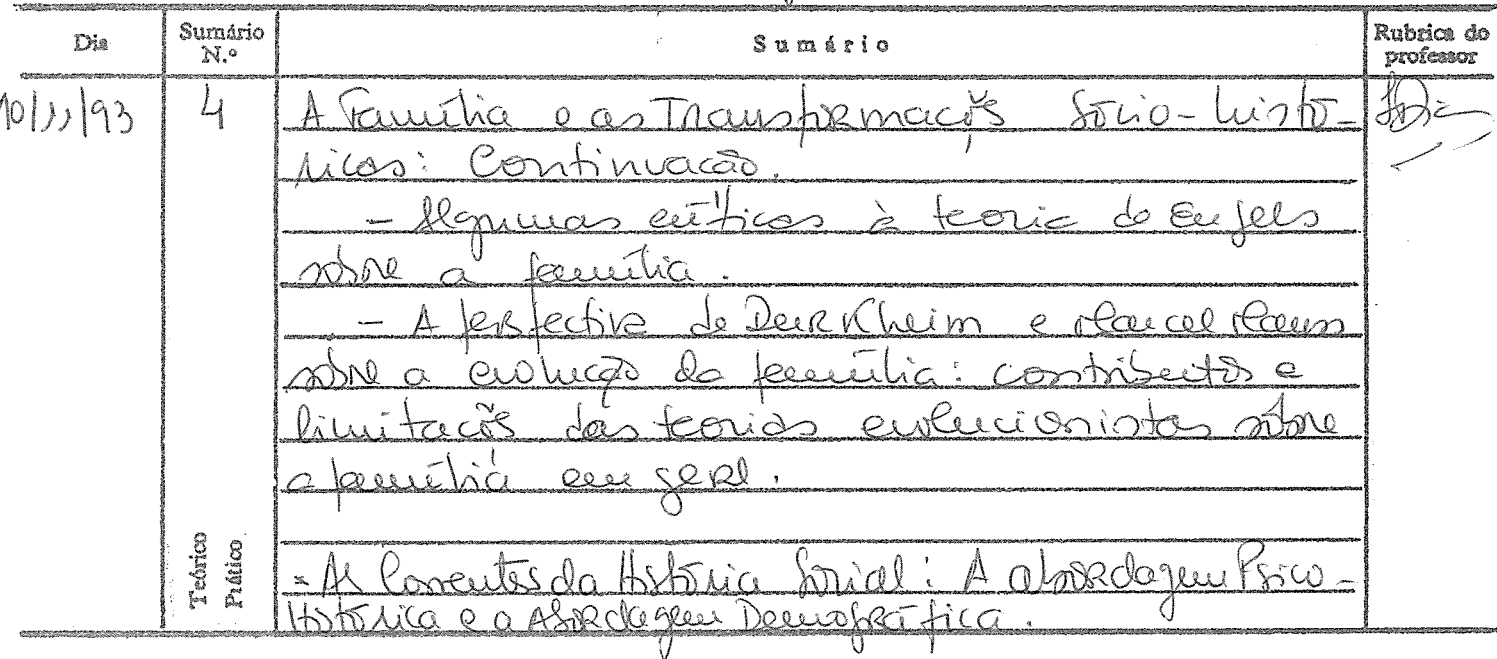 Dia Sumário N.º Sumário Rubrica do professor
10/11/93 4 A Família e as Transformações Sócio-histó-
ricas: Continuação.
- Algumas críticas à teoria de Engels
sobre a família.
- A perspectiva de Durkheim e Marcel Mauss
sobre a evolução da família: contributos e
limitações das teorias evolucionistas sobre
a família em geral.
Teórico
Prático
- As Correntes da História Social: A abordagem Psico-
Histórica e a Abordagem Demográfica.